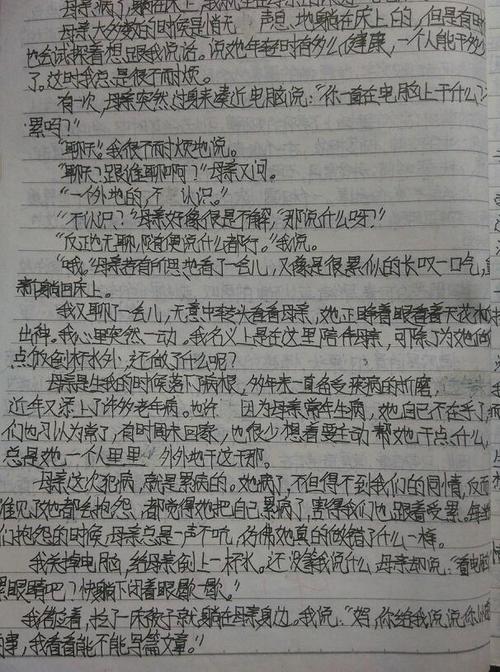 母亲病了,躺在床上,我就坐在母亲的床边
母亲大多数的时候是悄无声息地躺在床上的,但是有时
也会试探着想跟我说话。说她年轻时有多么健康,一个人能干多少
了。这时我总是很不耐烦。
有一次,母亲突然过身来凑近电脑说:“你一直在电脑上干什么?
累吗?”
“聊天。”我很不耐烦地说。
“聊天?跟谁聊啊?”母亲又问。
“一个外地的,不认识。”
“不认识?”母亲好像很是不解,“那说什么呀?”
“反正无聊,随便说什么都行。”我说。
“哦。”母亲若有所思地看了一会儿,又像是很累似的长叹一口气,重
新躺回床上。
我又聊了一会儿,无意中转头看看母亲,她正睁着眼看着天花板
出神。我心里突然一动。我名义上是在这里陪伴母亲,可除了为她做
点饭倒杯水外,还做了什么呢?
母亲是生我的时候落下病根,多年来一直备受疾病的折磨,
近年又添上了许多老年病。也许因为母亲常年生病,她自己不在乎了,
们也习以为常了,有时周末回家,也很少想着要主动帮她干点什么,
总是她一个人里里外外地干这干那。
母亲这次犯病,就是累病的。她病了,不但得不到我们的同情,反而
谁见了她都会抱怨,都觉得她把自己累病了,害得我们也跟着受累。每当
们抱怨的时候,母亲总是一声不吭,仿佛她真的做错了什么一样。
我关掉电脑,给母亲倒上一杯水。还没等我说什么,母亲却说:“看电脑
累眼睛吧?快躺下闭着眼歇一歇。”
我答应着,拉了一床被子就躺在母亲身边。我说:“妈,你给我说说你小时
的事,我看看能不能写篇文章。”